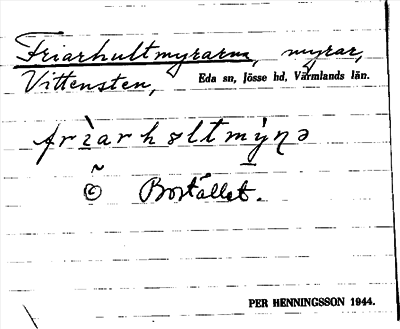 Friarhultmyrarna, myrar,
Vittensten, Eda sn, Jösse hd, Värmlands län.
frìarhultmýɳə
© Bortället.
PER HENNINGSSON 1944.